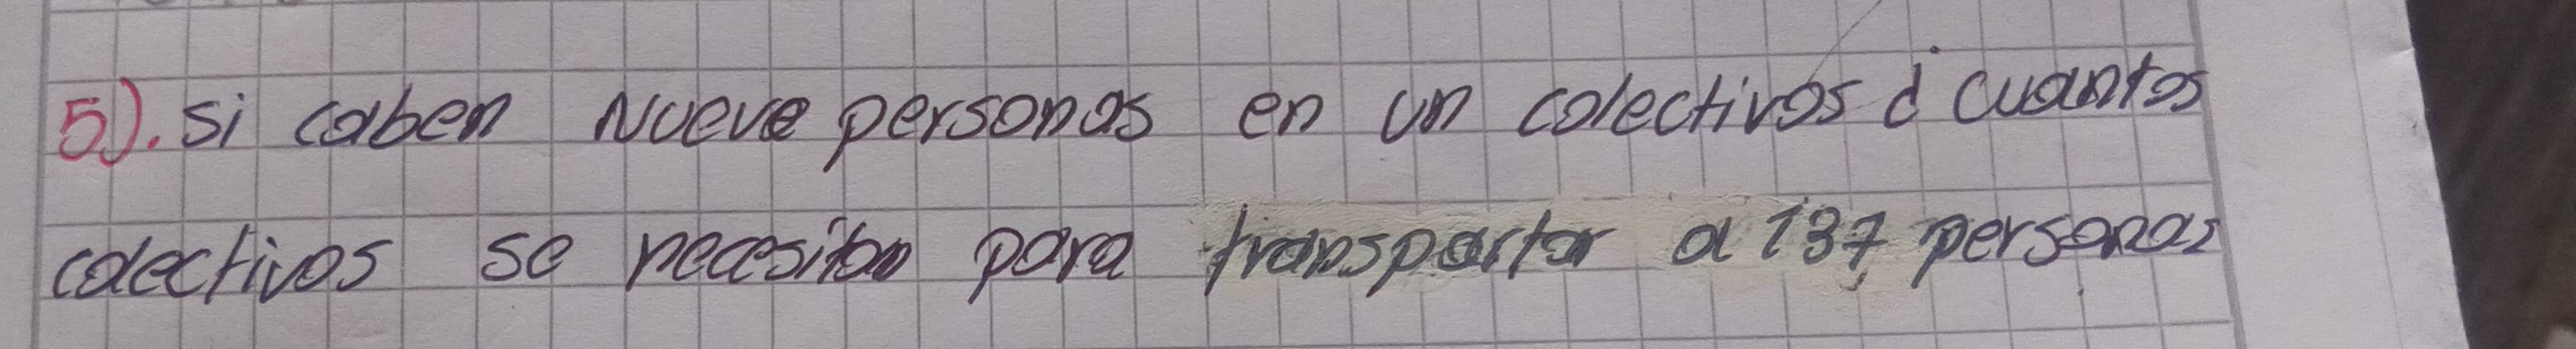 5). si caben Nueve personas en un colectivos ¿ cuantos
colectivos se necesitan para transportar a 137 personas